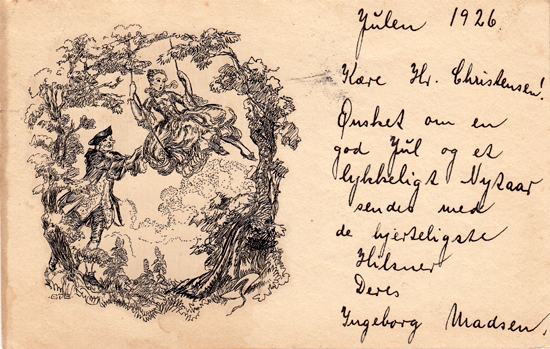 Julen 1926.
Kære Hr. Christensen!
Ønsket om en
god Jul og et
lykkeligt Nytaar
sendes med
de hjerteligste
Hilsner
Deres
Ingeborg Madsen.